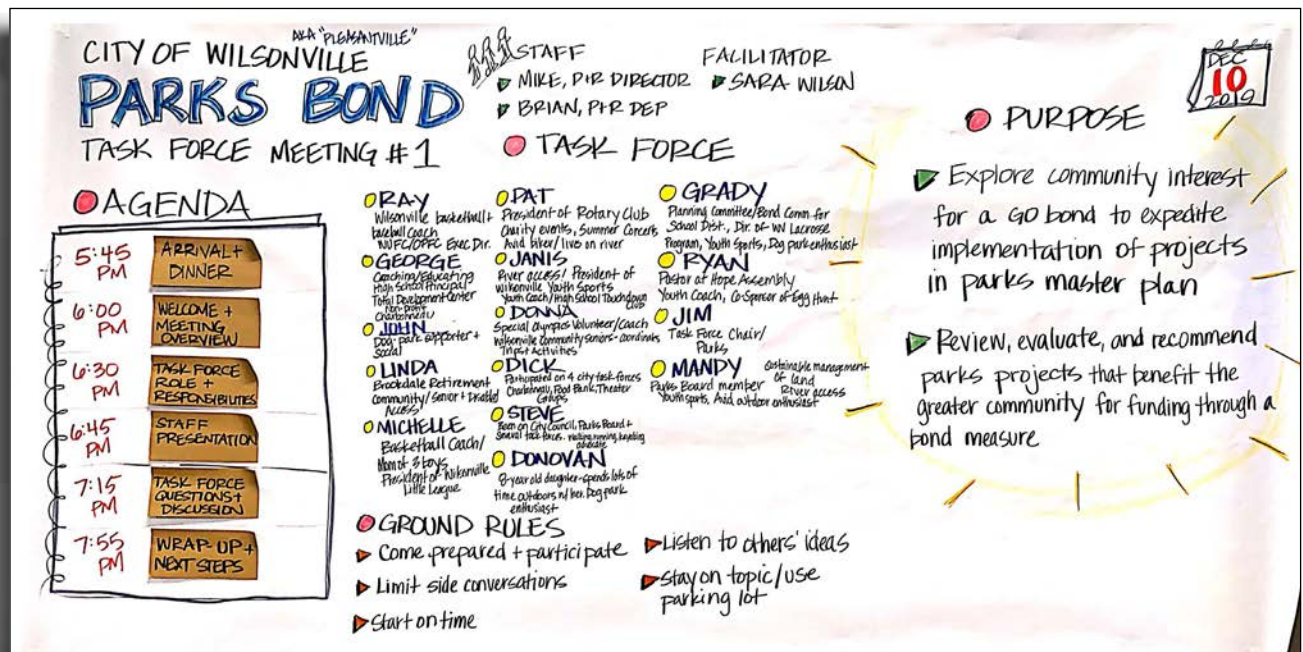 AKA "PLEASANTVILLE"
CITY OF WILSONVILLE
PARKS BOND
TASK FORCE MEETING #1
STAFF
MIKE, P+R DIRECTOR
BRIAN, P+R DEP
FACILITATOR
SARA WILSON
DEC
10
2019
AGENDA
5:45 PM
ARRIVAL +
DINNER
6:00 PM
WELCOME +
MEETING
OVERVIEW
6:30 PM
TASK FORCE
ROLE +
RESPONSIBILITIES
6:45 PM
STAFF
PRESENTATION
7:15 PM
TASK FORCE
QUESTIONS +
DISCUSSION
7:55 PM
WRAP-UP +
NEXT STEPS
TASK FORCE
RAY
Wilsonville basketball +
baseball Coach
Exec Dir.
GEORGE
Coaching/Educating
High School Principal
Total Development Center
Non-profit
Charbonneau
JOHN
Dog-park supporter +
Social
LINDA
Brookdale Retirement
Community/Senior + Disabled
Access
MICHELLE
Basketball Coach/
Mom of 3 boys
President of Wilsonville
Little League
PAT
President of Rotary Club
Charity events, Summer Concerts
Avid biker/live on river
JANIS
River access/President of
Wilsonville Youth Sports
Youth Coach/High School Touchdown
Club
DONNA
Special Olympics Volunteer/Coach
Wilsonville Community Seniors - coordinates
Trips + Activities
DICK
Participated on 4 city task forces
Charbonneau, Food Bank, Theater
Groups
STEVE
Been on City Council, Parks Board +
Several task forces. walking, running, kayaking
advocate
DONOVAN
8-year old daughter - spends lots of
time outdoors w/ her. Dog park
enthusiast
GRADY
Planning Committee/Bond Comm for
School Dist., Dir. of WV Lacrosse
Program, Youth Sports, Dog park enthusiast
RYAN
Pastor at Hope Assembly
Youth Coach, Co-Sponsor of Egg Hunt
JIM
Task Force Chair/
Parks
MANDY
Sustainable management
of land
River access
Parks Board member
Youth sports, Avid outdoor enthusiast
GROUND RULES
Come prepared + participate
Limit side conversations
Start on time
Listen to others' ideas
Stay on topic/use
parking lot
PURPOSE
Explore community interest
for a GO bond to expedite
implementation of projects
in parks master plan
Review, evaluate, and recommend
parks projects that benefit the
greater community for funding through a
bond measure